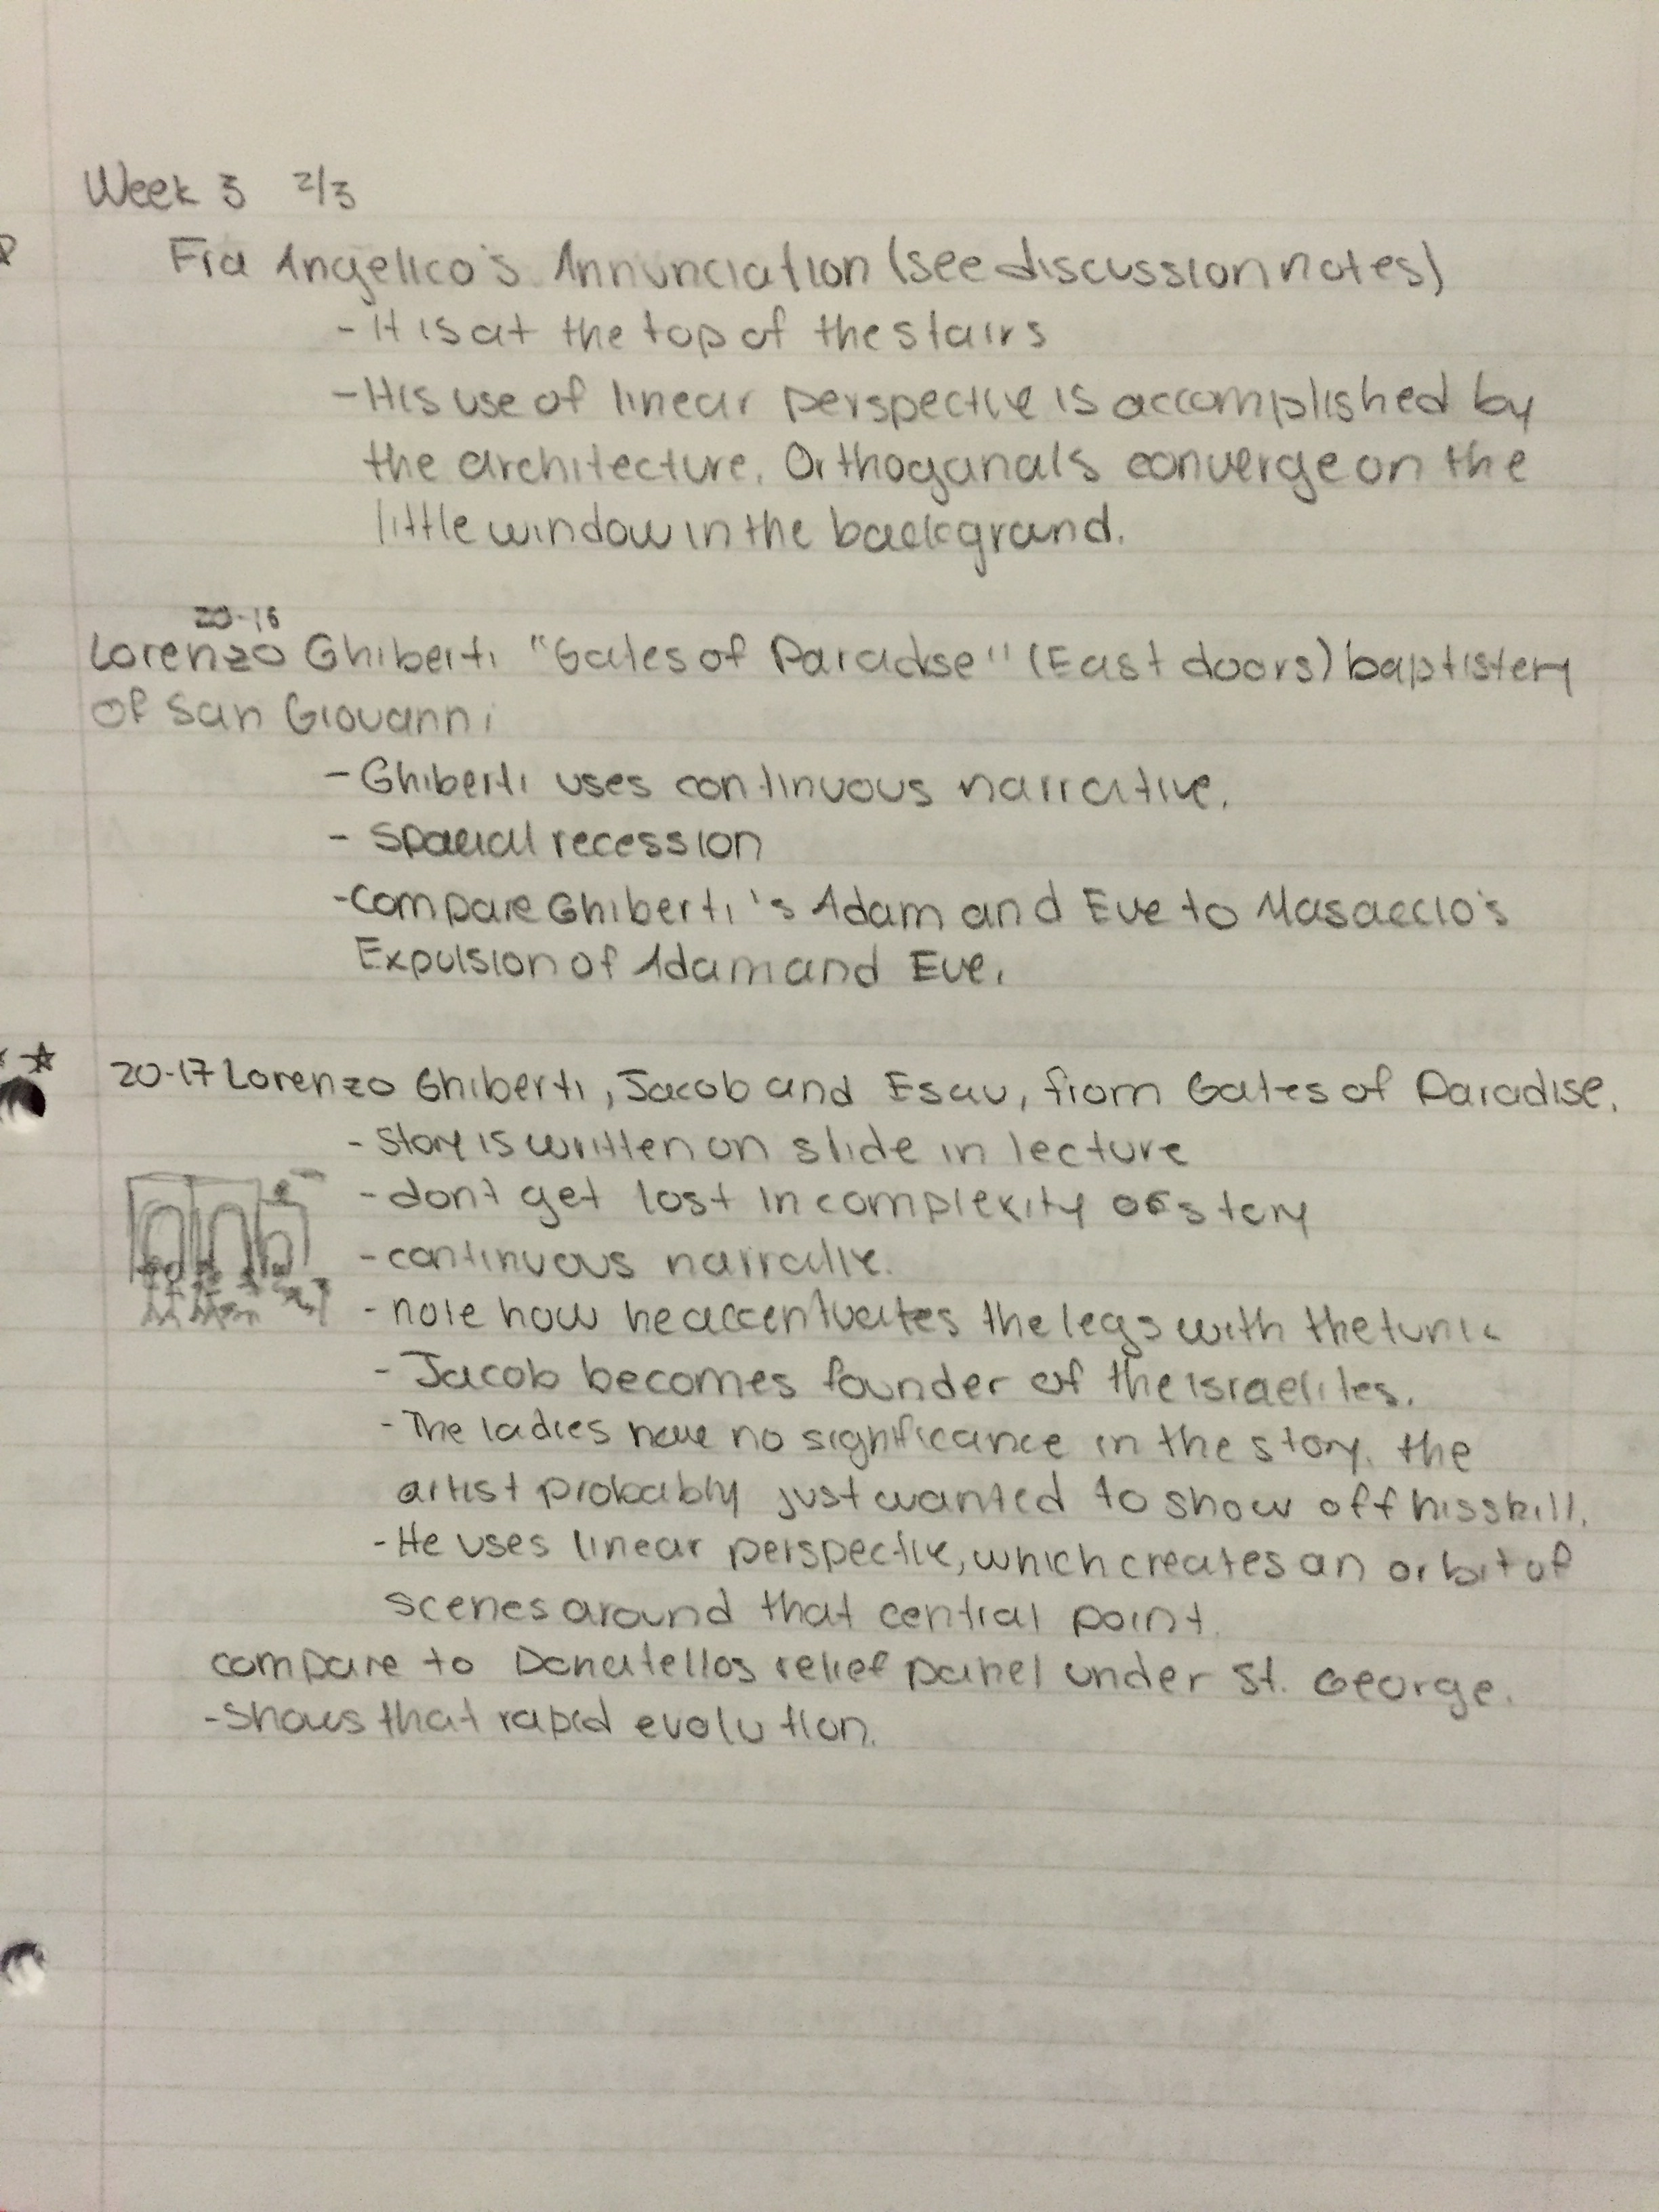 Week 3 2/3
Fra Angelico's Annunciation (see discussion notes)
- It is at the top of the stairs
- His use of linear perspective is accomplished by
the architecture. Orthoganals converge on the
little window in the background.
20-16
Lorenzo Ghiberti "Gates of Paradise" (East doors) baptistery
of San Giovanni
- Ghiberti uses continuous narrative.
- Spacial recession
- compare Ghiberti's Adam and Eve to Masaccio's
Expulsion of Adam and Eve.
20-17 Lorenzo Ghiberti, Jacob and Esau, from Gates of Paradise.
- Story is written on slide in lecture
- don't get lost in complexity of story
- continuous narrative.
- note how he accentuates the legs with the tunic
- Jacob becomes founder of the Israelites.
- The ladies have no significance in the story. the
artist probably just wanted to show off his skill.
- He uses linear perspective, which creates an orbit of
scenes around that central point.
compare to Donatellos relief panel under St. George.
- Shows that rapid evolution.